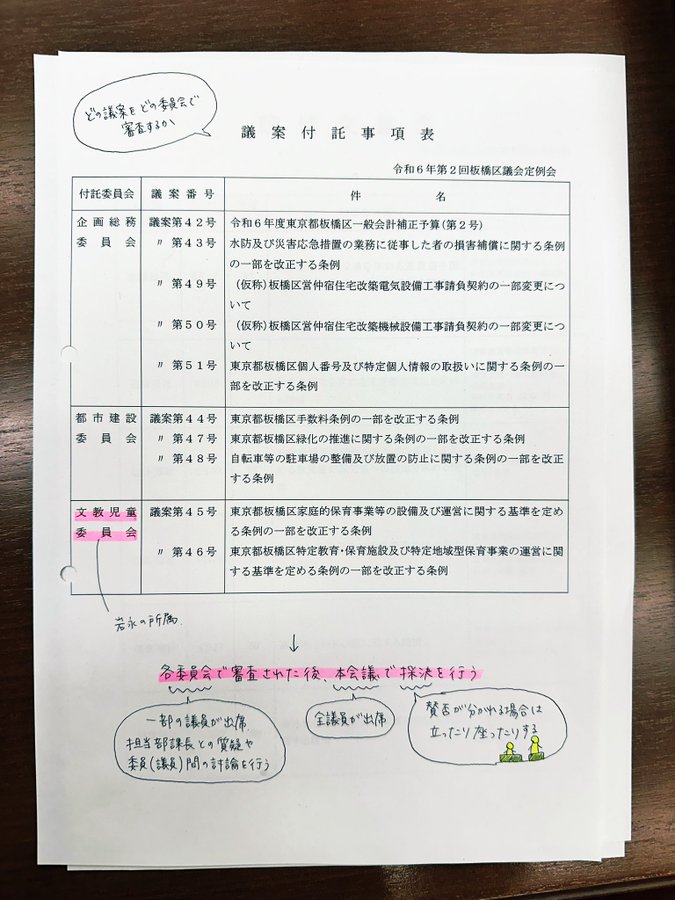 どの議案をどの委員会で
審査するか
議案付託事項表
令和6年第2回板橋区議会定例会
付託委員会 議案番号 件名
企画総務 議案第42号 令和6年度東京都板橋区一般会計補正予算(第2号)
委員会 〃 第43号 水防及び災害応急措置の業務に従事した者の損害補償に関する条例
の一部を改正する条例
〃 第49号 (仮称)板橋区営仲宿住宅改築電気設備工事請負契約の一部変更につ
いて
〃 第50号 (仮称)板橋区営仲宿住宅改築機械設備工事請負契約の一部変更につ
いて
〃 第51号 東京都板橋区個人番号及び特定個人情報の取扱いに関する条例の一
部を改正する条例
都市建設 議案第44号 東京都板橋区手数料条例の一部を改正する条例
委員会 〃 第47号 東京都板橋区緑化の推進に関する条例の一部を改正する条例
〃 第48号 自転車等の駐車場の整備及び放置の防止に関する条例の一部を改正
する条例
文教児童 議案第45号 東京都板橋区家庭的保育事業等の設備及び運営に関する基準を定め
委員会 る条例の一部を改正する条例
〃 第46号 東京都板橋区特定教育・保育施設及び特定地域型保育事業の運営に関
する基準を定める条例の一部を改正する条例
岩永の所属.
↓
各委員会で審査された後、本会議で採決を行う
一部の議員が出席.
担当部課長との質疑や
委員(議員)間の討論を行う
全議員が出席
賛否が分かれる場合は
立ったり座ったりする